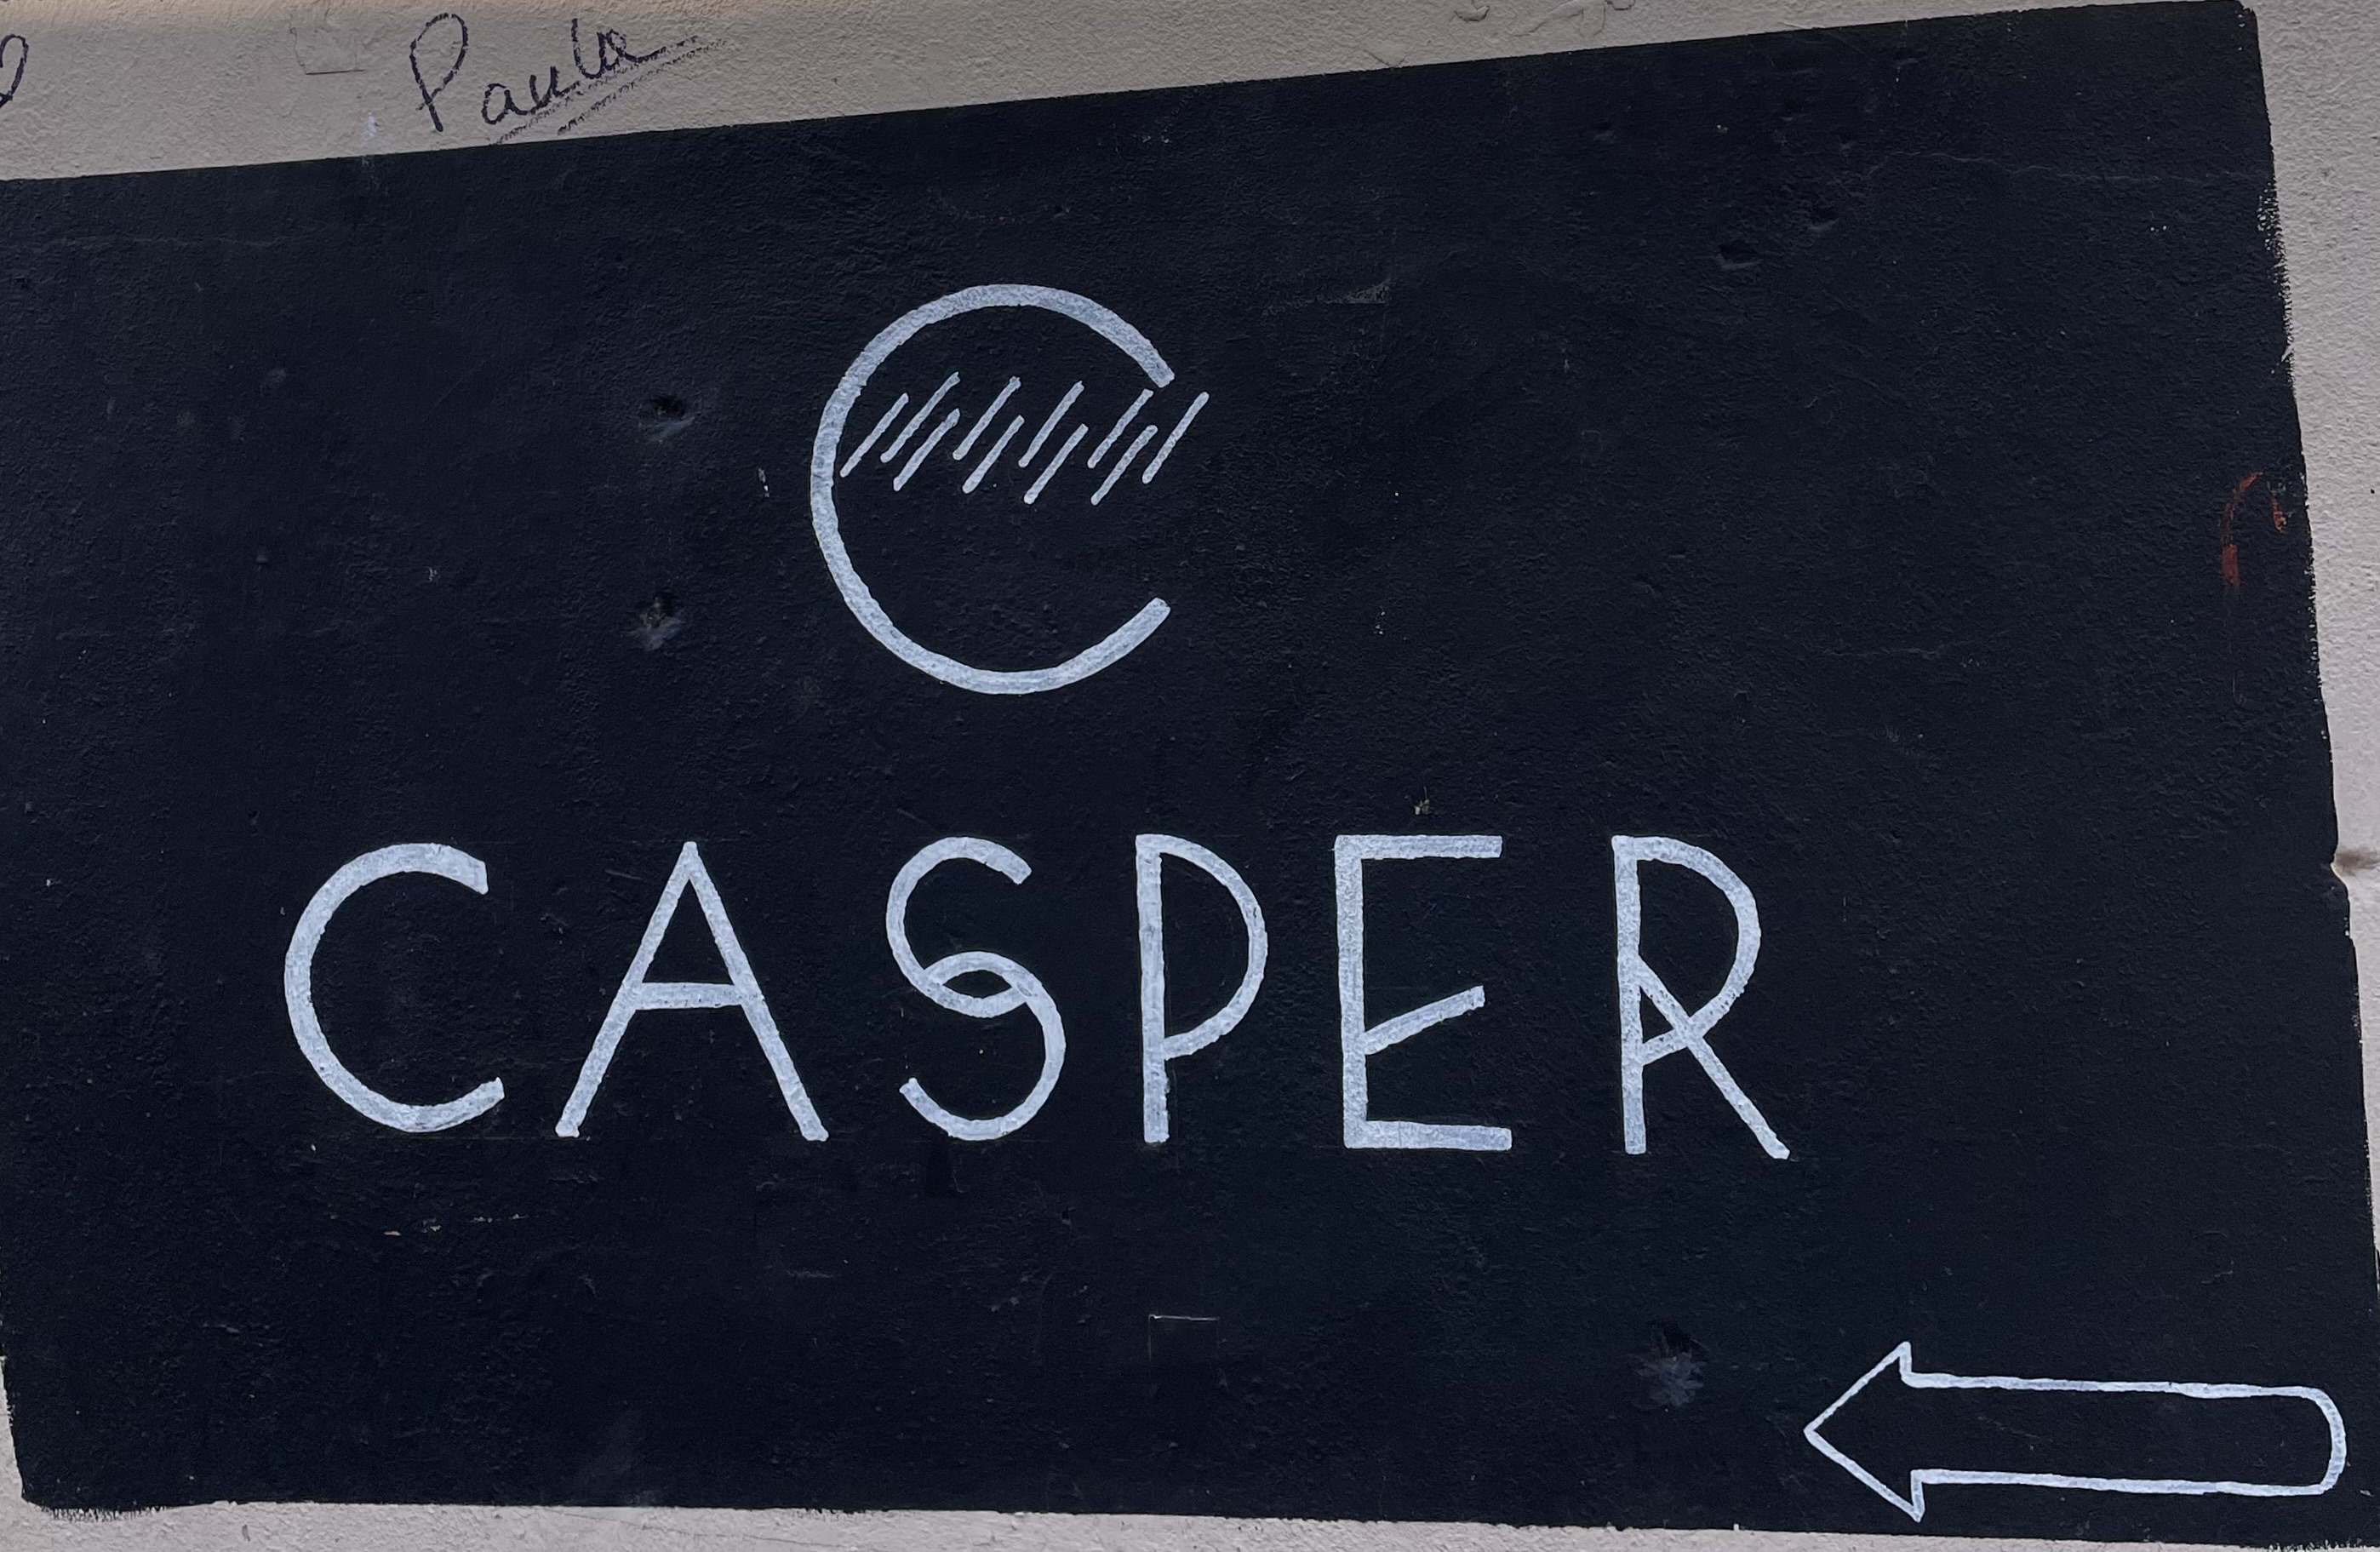 Paula
C
CASPER